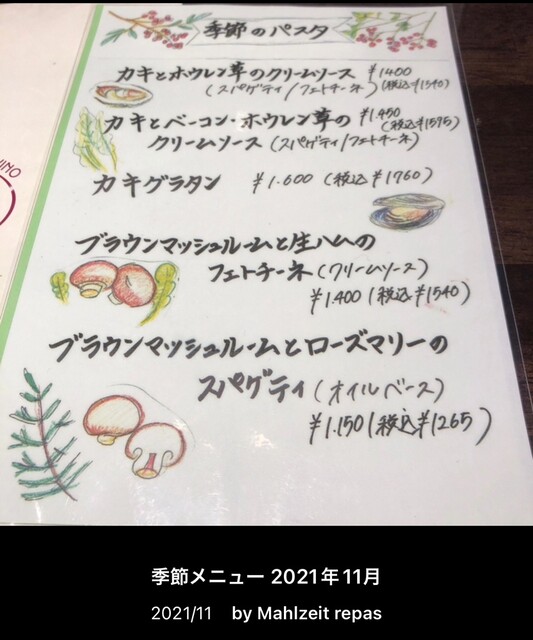 季節のパスタ
カキとホウレン草のクリームソース ¥1400
(スパゲティ/フェトチーネ) (税込¥1540)
カキとベーコン・ホウレン草の ¥1.450
クリームソース (スパゲティ/フェトチーネ) (税込¥1595)
カキグラタン ¥1.600 (税込¥1760)
ブラウンマッシュルームと生ハムの
フェトチーネ(クリームソース)
¥1.400 (税込¥1540)
ブラウンマッシュルームとローズマリーの
スパゲティ (オイルベース)
¥1.150 (税込¥1265)
季節メニュー 2021年11月
2021/11 by Mahlzeit repas